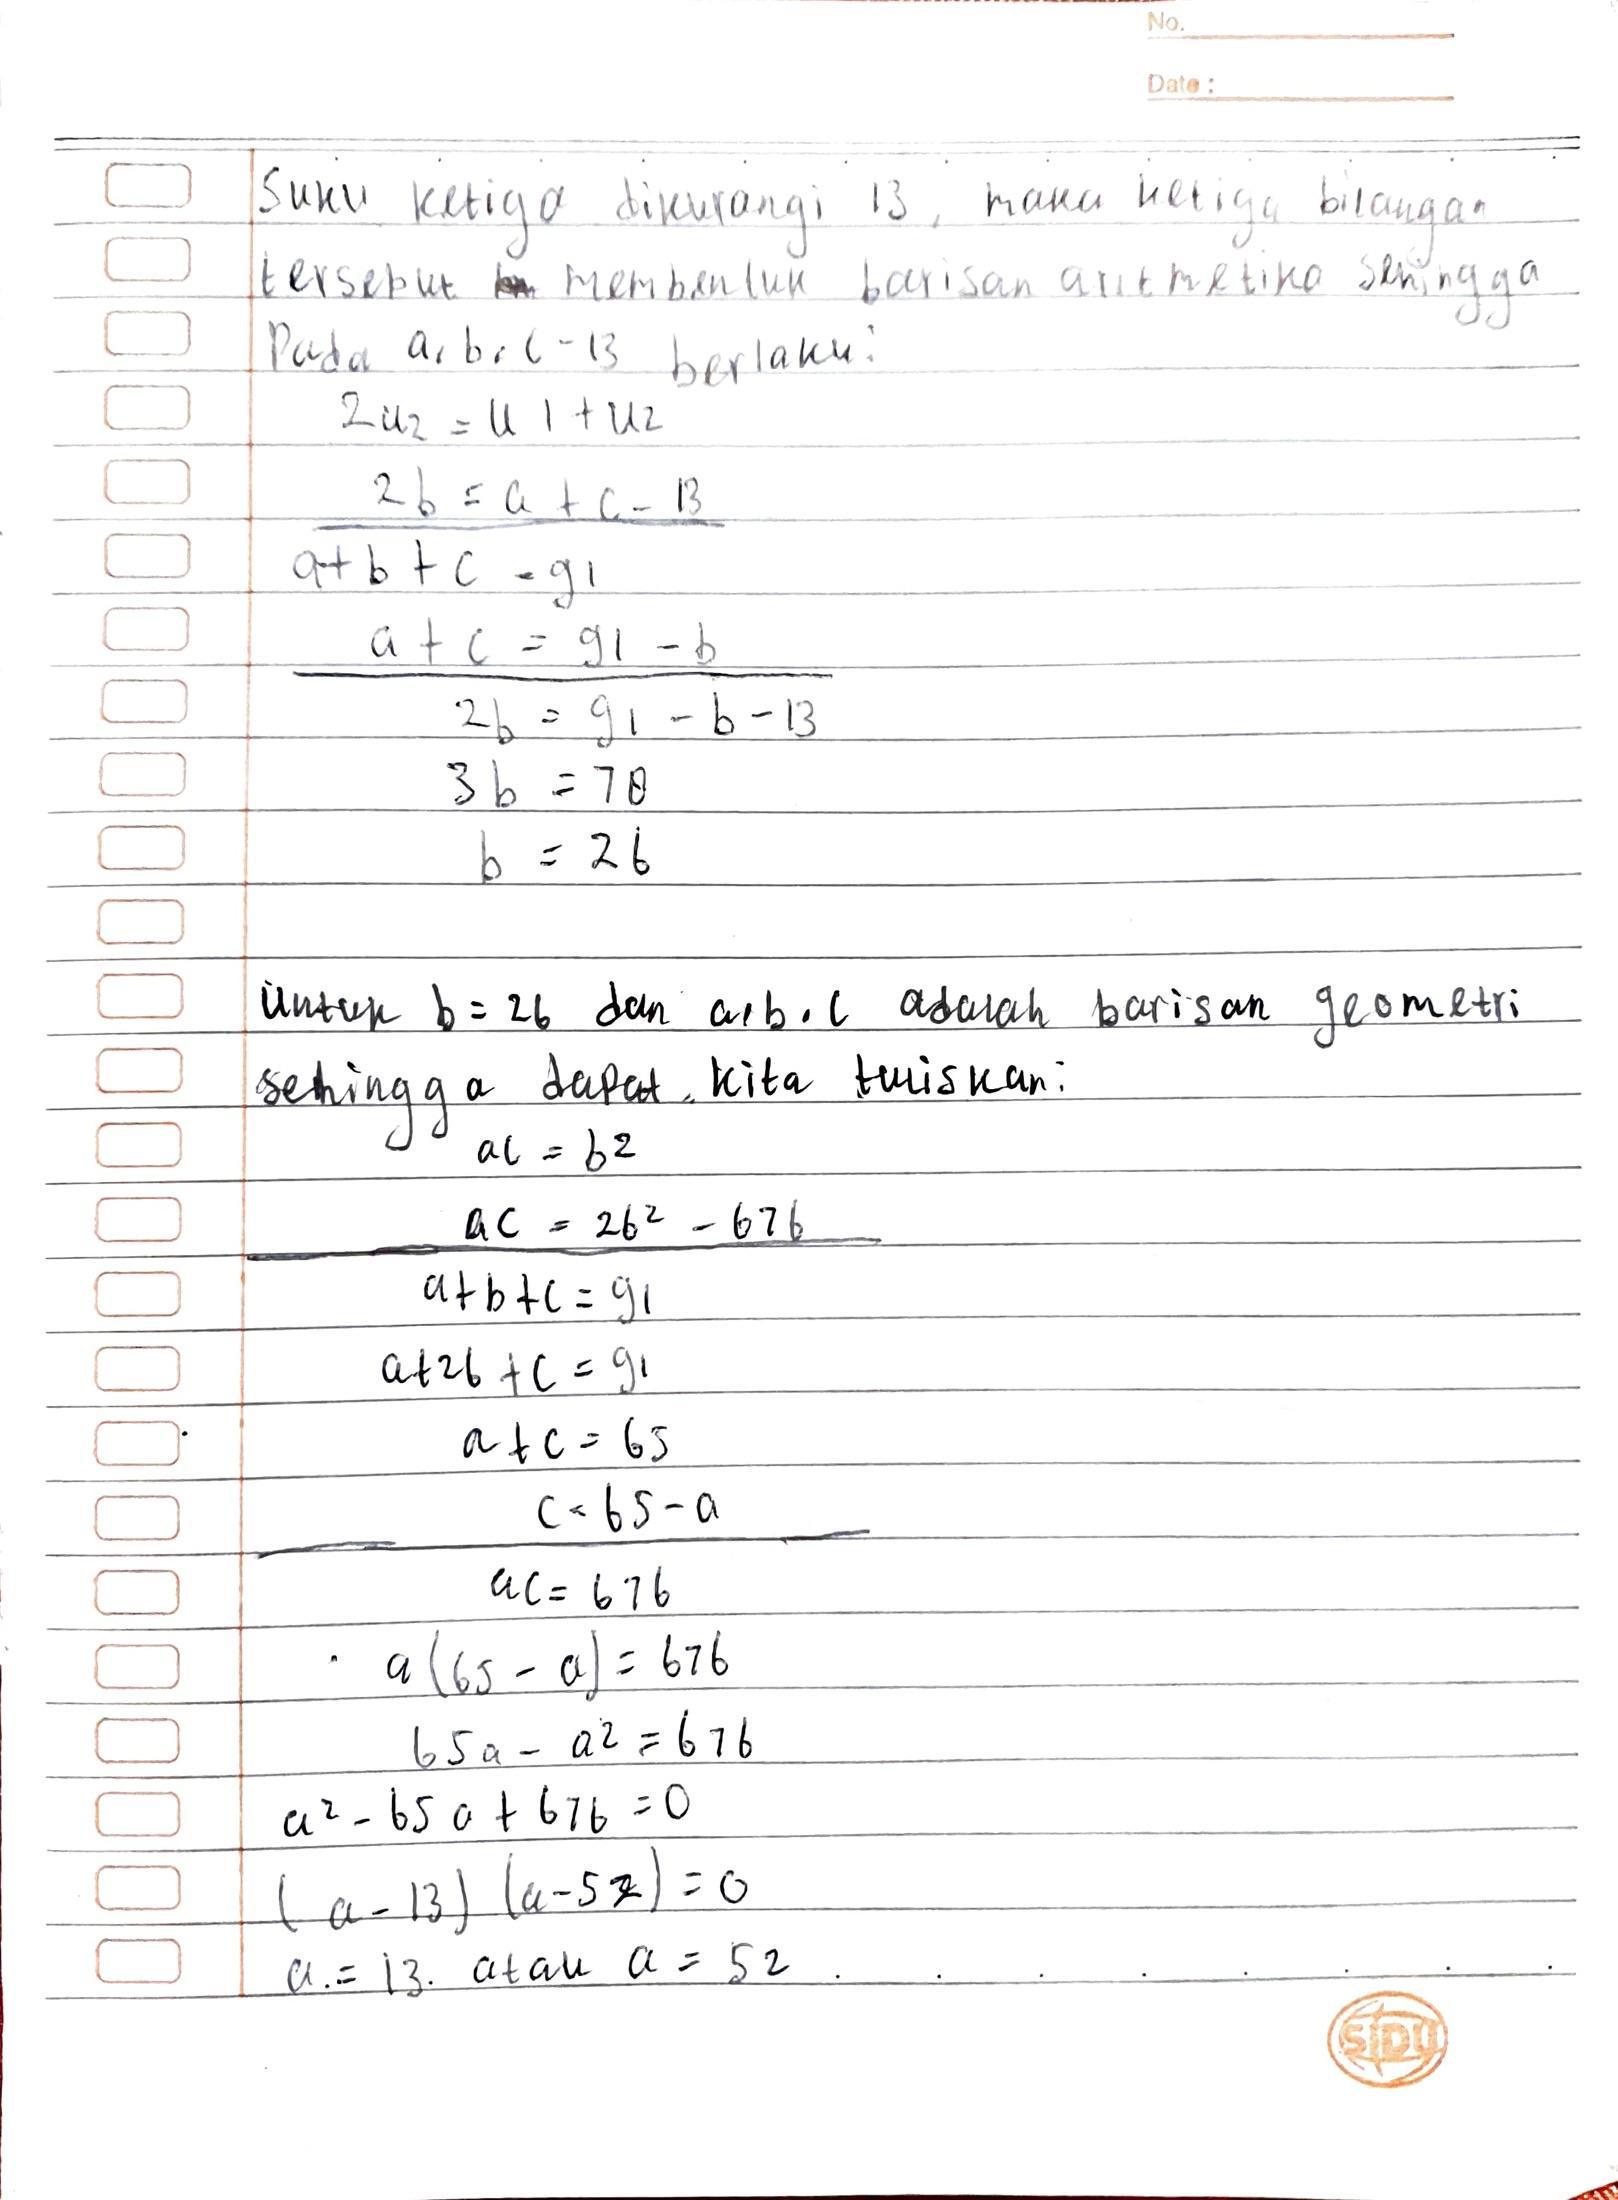 No.
Date :
Suku ketiga dikurangi 13, maka ketiga bilangan
tersebut membentuk barisan aritmetika sehingga
Pada a, b, c - 13 berlaku:
2u2 = U1 + U2
2b = a + c - 13
a + b + c = 91
a + c = 91 - b
2b = 91 - b - 13
3b = 78
b = 26
Untuk b = 26 dan a, b, c adalah barisan geometri
sehingga dapat kita tuliskan:
ac = b2
ac = 26² - 676
a + b + c = 91
a + 26 + c = 91
a + c = 65
c = 65 - a
ac = 676
a (65 - a) = 676
65a - a² = 676
a² - 65a + 676 = 0
(a - 13) (a - 52) = 0
a = 13. atau a = 52
SIDU